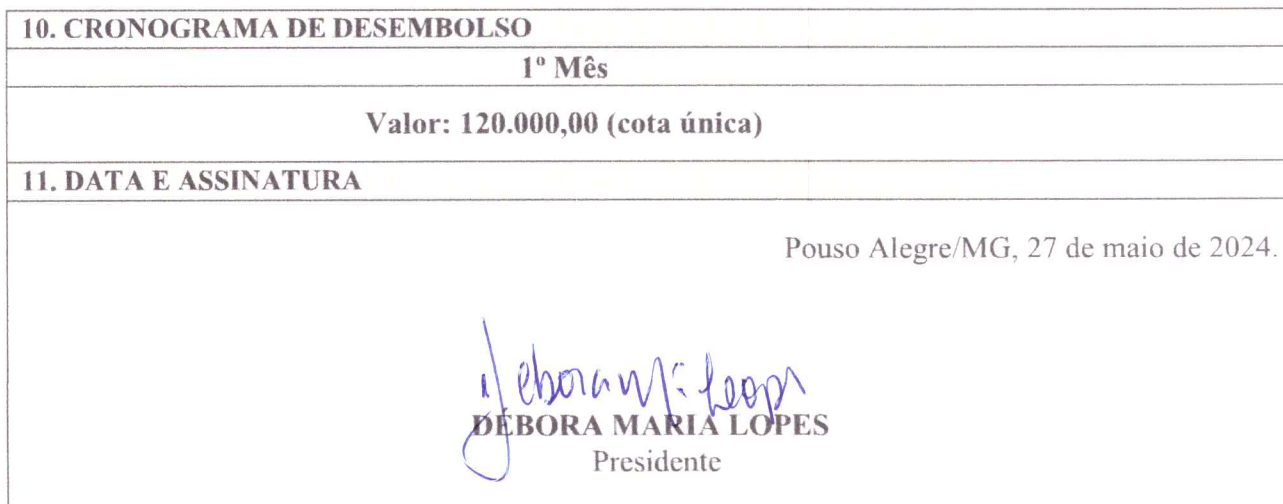 10. CRONOGRAMA DE DESEMBOLSO
1º Mês
Valor: 120.000,00 (cota única)
11. DATA E ASSINATURA
Pouso Alegre/MG, 27 de maio de 2024.
Debora Mª Lopes
DÉBORA MARIA LOPES
Presidente